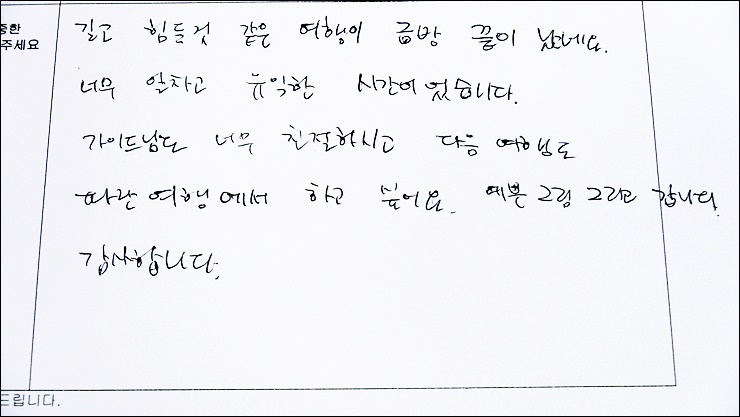 중한
주세요
길고 힘들것 같은 여행이 금방 끝이 났네요.
너무 알차고 유익한 시간이었습니다.
가이드님도 너무 친절하시고 다음 여행도
파란여행에서 하고 싶어요. 예쁜 그림 그리고 갑니다.
감사합니다.
드립니다.